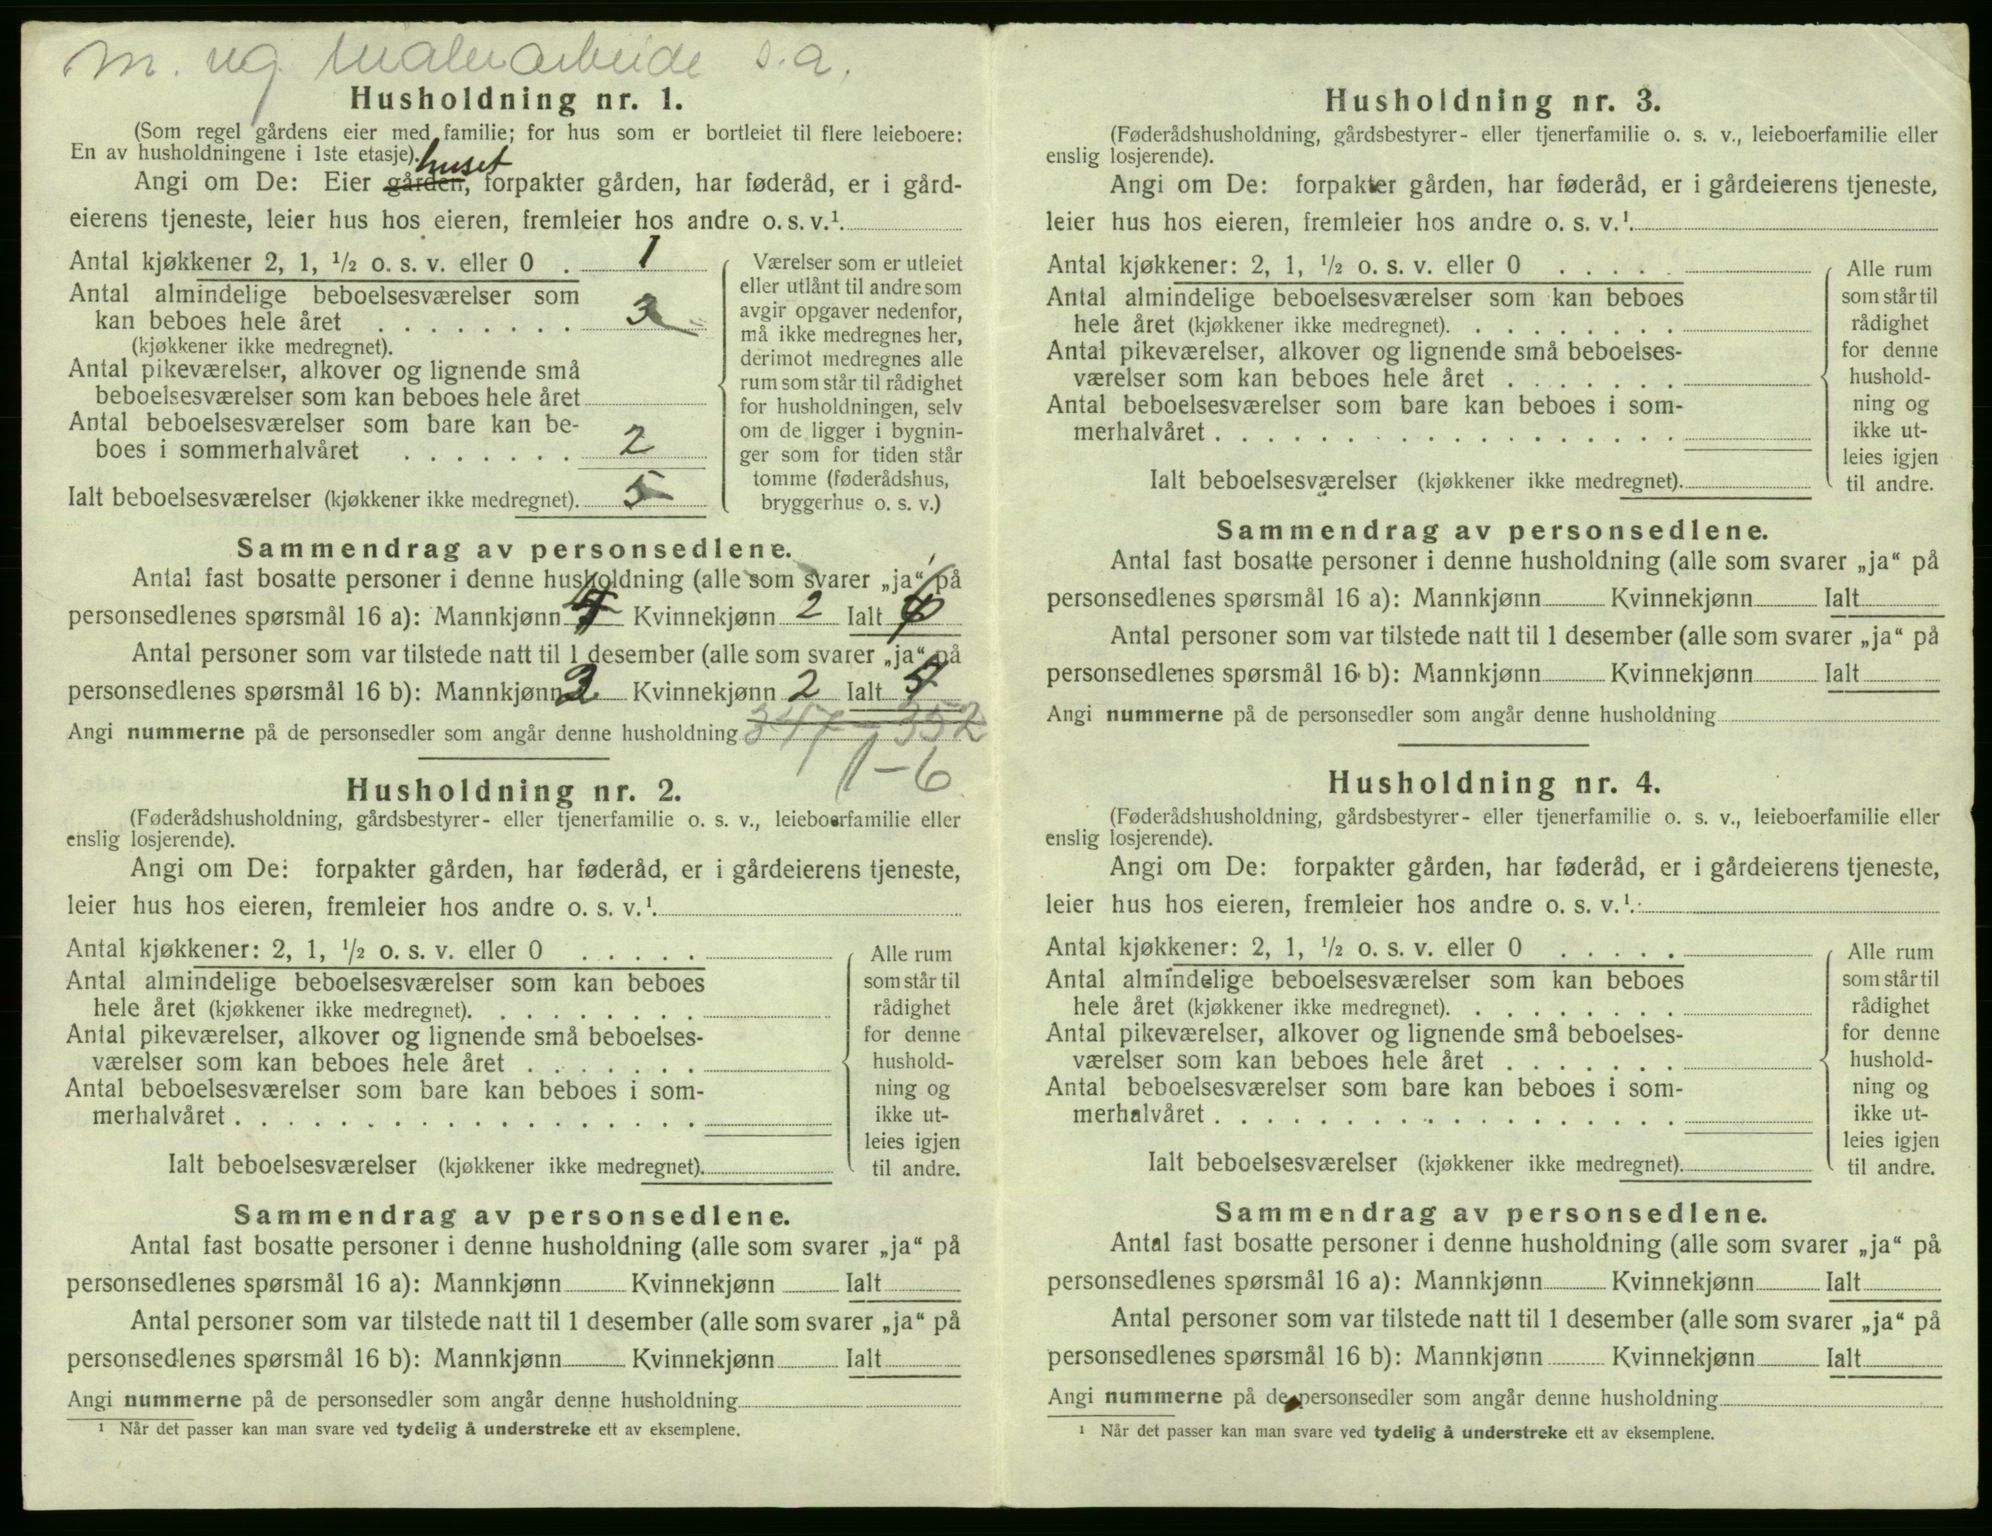 m. ug. malerarbeide s. a.
Husholdning nr. 1.
(Som regel gårdens eier med familie; for hus som er bortleiet til flere leieboere:
En av husholdningene i 1ste etasje).
huset
Angi om De: Eier gården, forpakter gården, har føderåd, er i gård-
eierens tjeneste, leier hus hos eieren, fremleier hos andre o. s. v.¹.
Antal kjøkkener 2, 1, ½ o. s. v. eller 0 . 1
Antal almindelige beboelsesværelser som
kan beboes hele året . . . . . . . . 3
(kjøkkener ikke medregnet).
Antal pikeværelser, alkover og lignende små
beboelsesværelser som kan beboes hele året
Antal beboelsesværelser som bare kan be-
boes i sommerhalvåret . . . . . . . 2
Ialt beboelsesværelser (kjøkkener ikke medregnet). 5
Værelser som er utleiet
eller utlånt til andre som
avgir opgaver nedenfor,
må ikke medregnes her,
derimot medregnes alle
rum som står til rådighet
for husholdningen, selv
om de ligger i bygnin-
ger som for tiden står
tomme (føderådshus,
bryggerhus o. s. v.)
Sammendrag av personsedlene.
Antal fast bosatte personer i denne husholdning (alle som svarer „ja“ på
personsedlenes spørsmål 16 a): Mannkjønn 4 Kvinnekjønn 2 Ialt 6
Antal personer som var tilstede natt til 1 desember (alle som svarer „ja“ på
personsedlenes spørsmål 16 b): Mannkjønn Kvinnekjønn 2 Ialt
Angi nummerne på de personsedler som angår denne husholdning 347 - 352
1-6
Husholdning nr. 2.
(Føderådshusholdning, gårdsbestyrer- eller tjenerfamilie o. s. v., leieboerfamilie eller
enslig losjerende).
Angi om De: forpakter gården, har føderåd, er i gårdeierens tjeneste,
leier hus hos eieren, fremleier hos andre o. s. v.¹.
Antal kjøkkener: 2, 1, ½ o. s. v. eller 0 . . . . .
Antal almindelige beboelsesværelser som kan beboes
hele året (kjøkkener ikke medregnet). . . . . . . . .
Antal pikeværelser, alkover og lignende små beboelses-
værelser som kan beboes hele året . . . . . . .
Antal beboelsesværelser som bare kan beboes i som-
merhalvåret . . . . . . . . . . . . . . . . . .
Ialt beboelsesværelser (kjøkkener ikke medregnet).
Alle rum
som står til
rådighet
for denne
hushold-
ning og
ikke ut-
leies igjen
til andre.
Sammendrag av personsedlene.
Antal fast bosatte personer i denne husholdning (alle som svarer „ja“ på
personsedlenes spørsmål 16 a): Mannkjønn Kvinnekjønn Ialt
Antal personer som var tilstede natt til 1 desember (alle som svarer „ja“ på
personsedlenes spørsmål 16 b): Mannkjønn Kvinnekjønn Ialt
Angi nummerne på de personsedler som angår denne husholdning
¹ Når det passer kan man svare ved tydelig å understreke ett av eksemplene.
Husholdning nr. 3.
(Føderådshusholdning, gårdsbestyrer- eller tjenerfamilie o. s. v., leieboerfamilie eller
enslig losjerende).
Angi om De: forpakter gården, har føderåd, er i gårdeierens tjeneste,
leier hus hos eieren, fremleier hos andre o. s. v.¹.
Antal kjøkkener: 2, 1, ½ o. s. v. eller 0 . . . . .
Antal almindelige beboelsesværelser som kan beboes
hele året (kjøkkener ikke medregnet). . . . . . . . .
Antal pikeværelser, alkover og lignende små beboelses-
værelser som kan beboes hele året . . . . . . .
Antal beboelsesværelser som bare kan beboes i som-
merhalvåret . . . . . . . . . . . . . . . . . .
Ialt beboelsesværelser (kjøkkener ikke medregnet).
Alle rum
som står til
rådighet
for denne
hushold-
ning og
ikke ut-
leies igjen
til andre.
Sammendrag av personsedlene.
Antal fast bosatte personer i denne husholdning (alle som svarer „ja“ på
personsedlenes spørsmål 16 a): Mannkjønn Kvinnekjønn Ialt
Antal personer som var tilstede natt til 1 desember (alle som svarer „ja“ på
personsedlenes spørsmål 16 b): Mannkjønn Kvinnekjønn Ialt
Angi nummerne på de personsedler som angår denne husholdning
Husholdning nr. 4.
(Føderådshusholdning, gårdsbestyrer- eller tjenerfamilie o. s. v., leieboerfamilie eller
enslig losjerende).
Angi om De: forpakter gården, har føderåd, er i gårdeierens tjeneste,
leier hus hos eieren, fremleier hos andre o. s. v.¹.
Antal kjøkkener: 2, 1, ½ o. s. v. eller 0 . . . . .
Antal almindelige beboelsesværelser som kan beboes
hele året (kjøkkener ikke medregnet). . . . . . . . .
Antal pikeværelser, alkover og lignende små beboelses-
værelser som kan beboes hele året . . . . . . .
Antal beboelsesværelser som bare kan beboes i som-
merhalvåret . . . . . . . . . . . . . . . . . .
Ialt beboelsesværelser (kjøkkener ikke medregnet).
Alle rum
som står til
rådighet
for denne
hushold-
ning og
ikke ut-
leies igjen
til andre.
Sammendrag av personsedlene.
Antal fast bosatte personer i denne husholdning (alle som svarer „ja“ på
personsedlenes spørsmål 16 a): Mannkjønn Kvinnekjønn Ialt
Antal personer som var tilstede natt til 1 desember (alle som svarer „ja“ på
personsedlenes spørsmål 16 b): Mannkjønn Kvinnekjønn Ialt
Angi nummerne på de personsedler som angår denne husholdning
¹ Når det passer kan man svare ved tydelig å understreke ett av eksemplene.